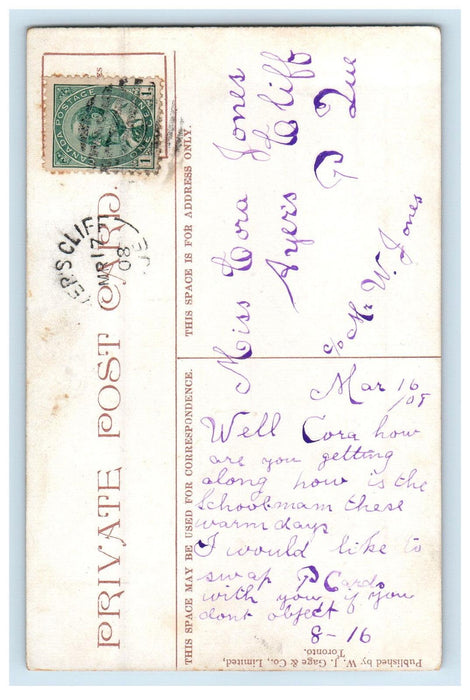 PRIVATE POST CARD.
CANADA POSTAGE
1 1
CENT
YER'S CLIFF
MR 17
08
THIS SPACE MAY BE USED FOR CORRESPONDENCE.
THIS SPACE IS FOR ADDRESS ONLY.
Miss Cora Jones
Ayers Cliff
P Que
c/o Mr W. Jones
Mar 16
/08
Well Cora how
are you getting
along how is the
Schoolmam these
warm days
I would like to
swap P Cards
with you if you
dont object
8-16
Published by W. J. Gage & Co., Limited,
Toronto.